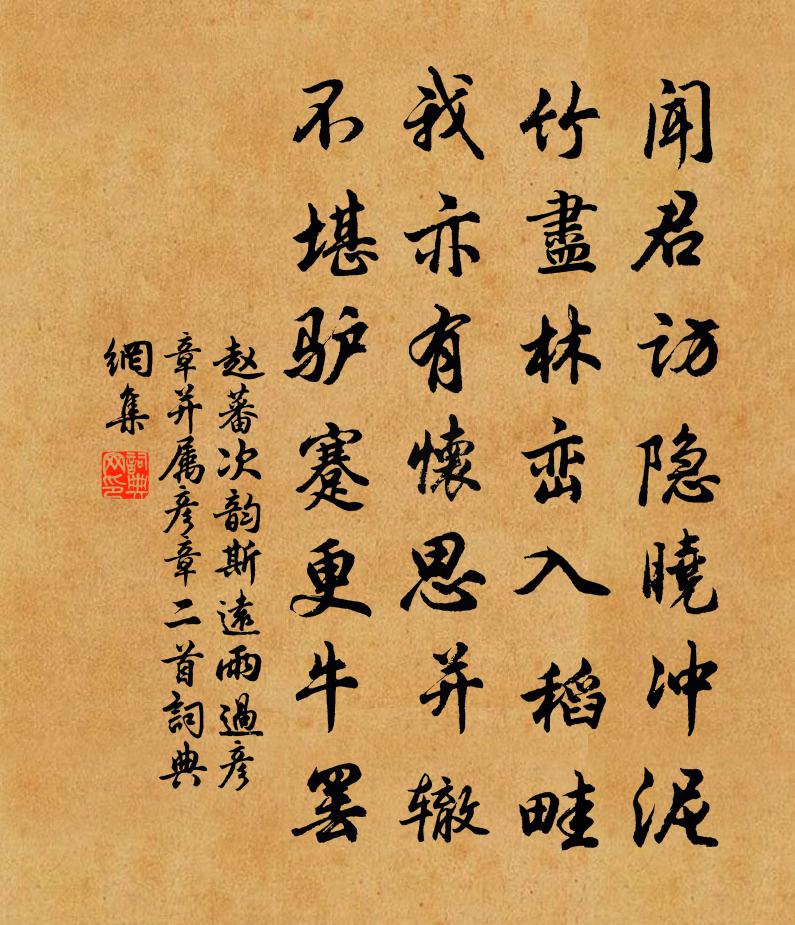 闻君访隐曉冲泥
竹盡林峦入稻畦
我亦有懷思并辙
不堪驴蹇更牛罢
赵蕃次韵斯遠雨過彦
章并属彦章二首詞典
網集
詞典
网印